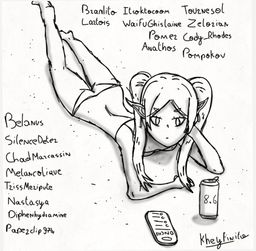 Brantito Ilroktocoom Tournesol
Lartois WaifuGhislaine Zelorian
Pomez Cody_Rhodes
Anathos Pompokou
Belanus
SilenceDelez
ChadMarcassin
Melancolique
TzissMezipule
Nastasya
Diphenhydramine
Papezclip974
8.6
KhelyFiwiha